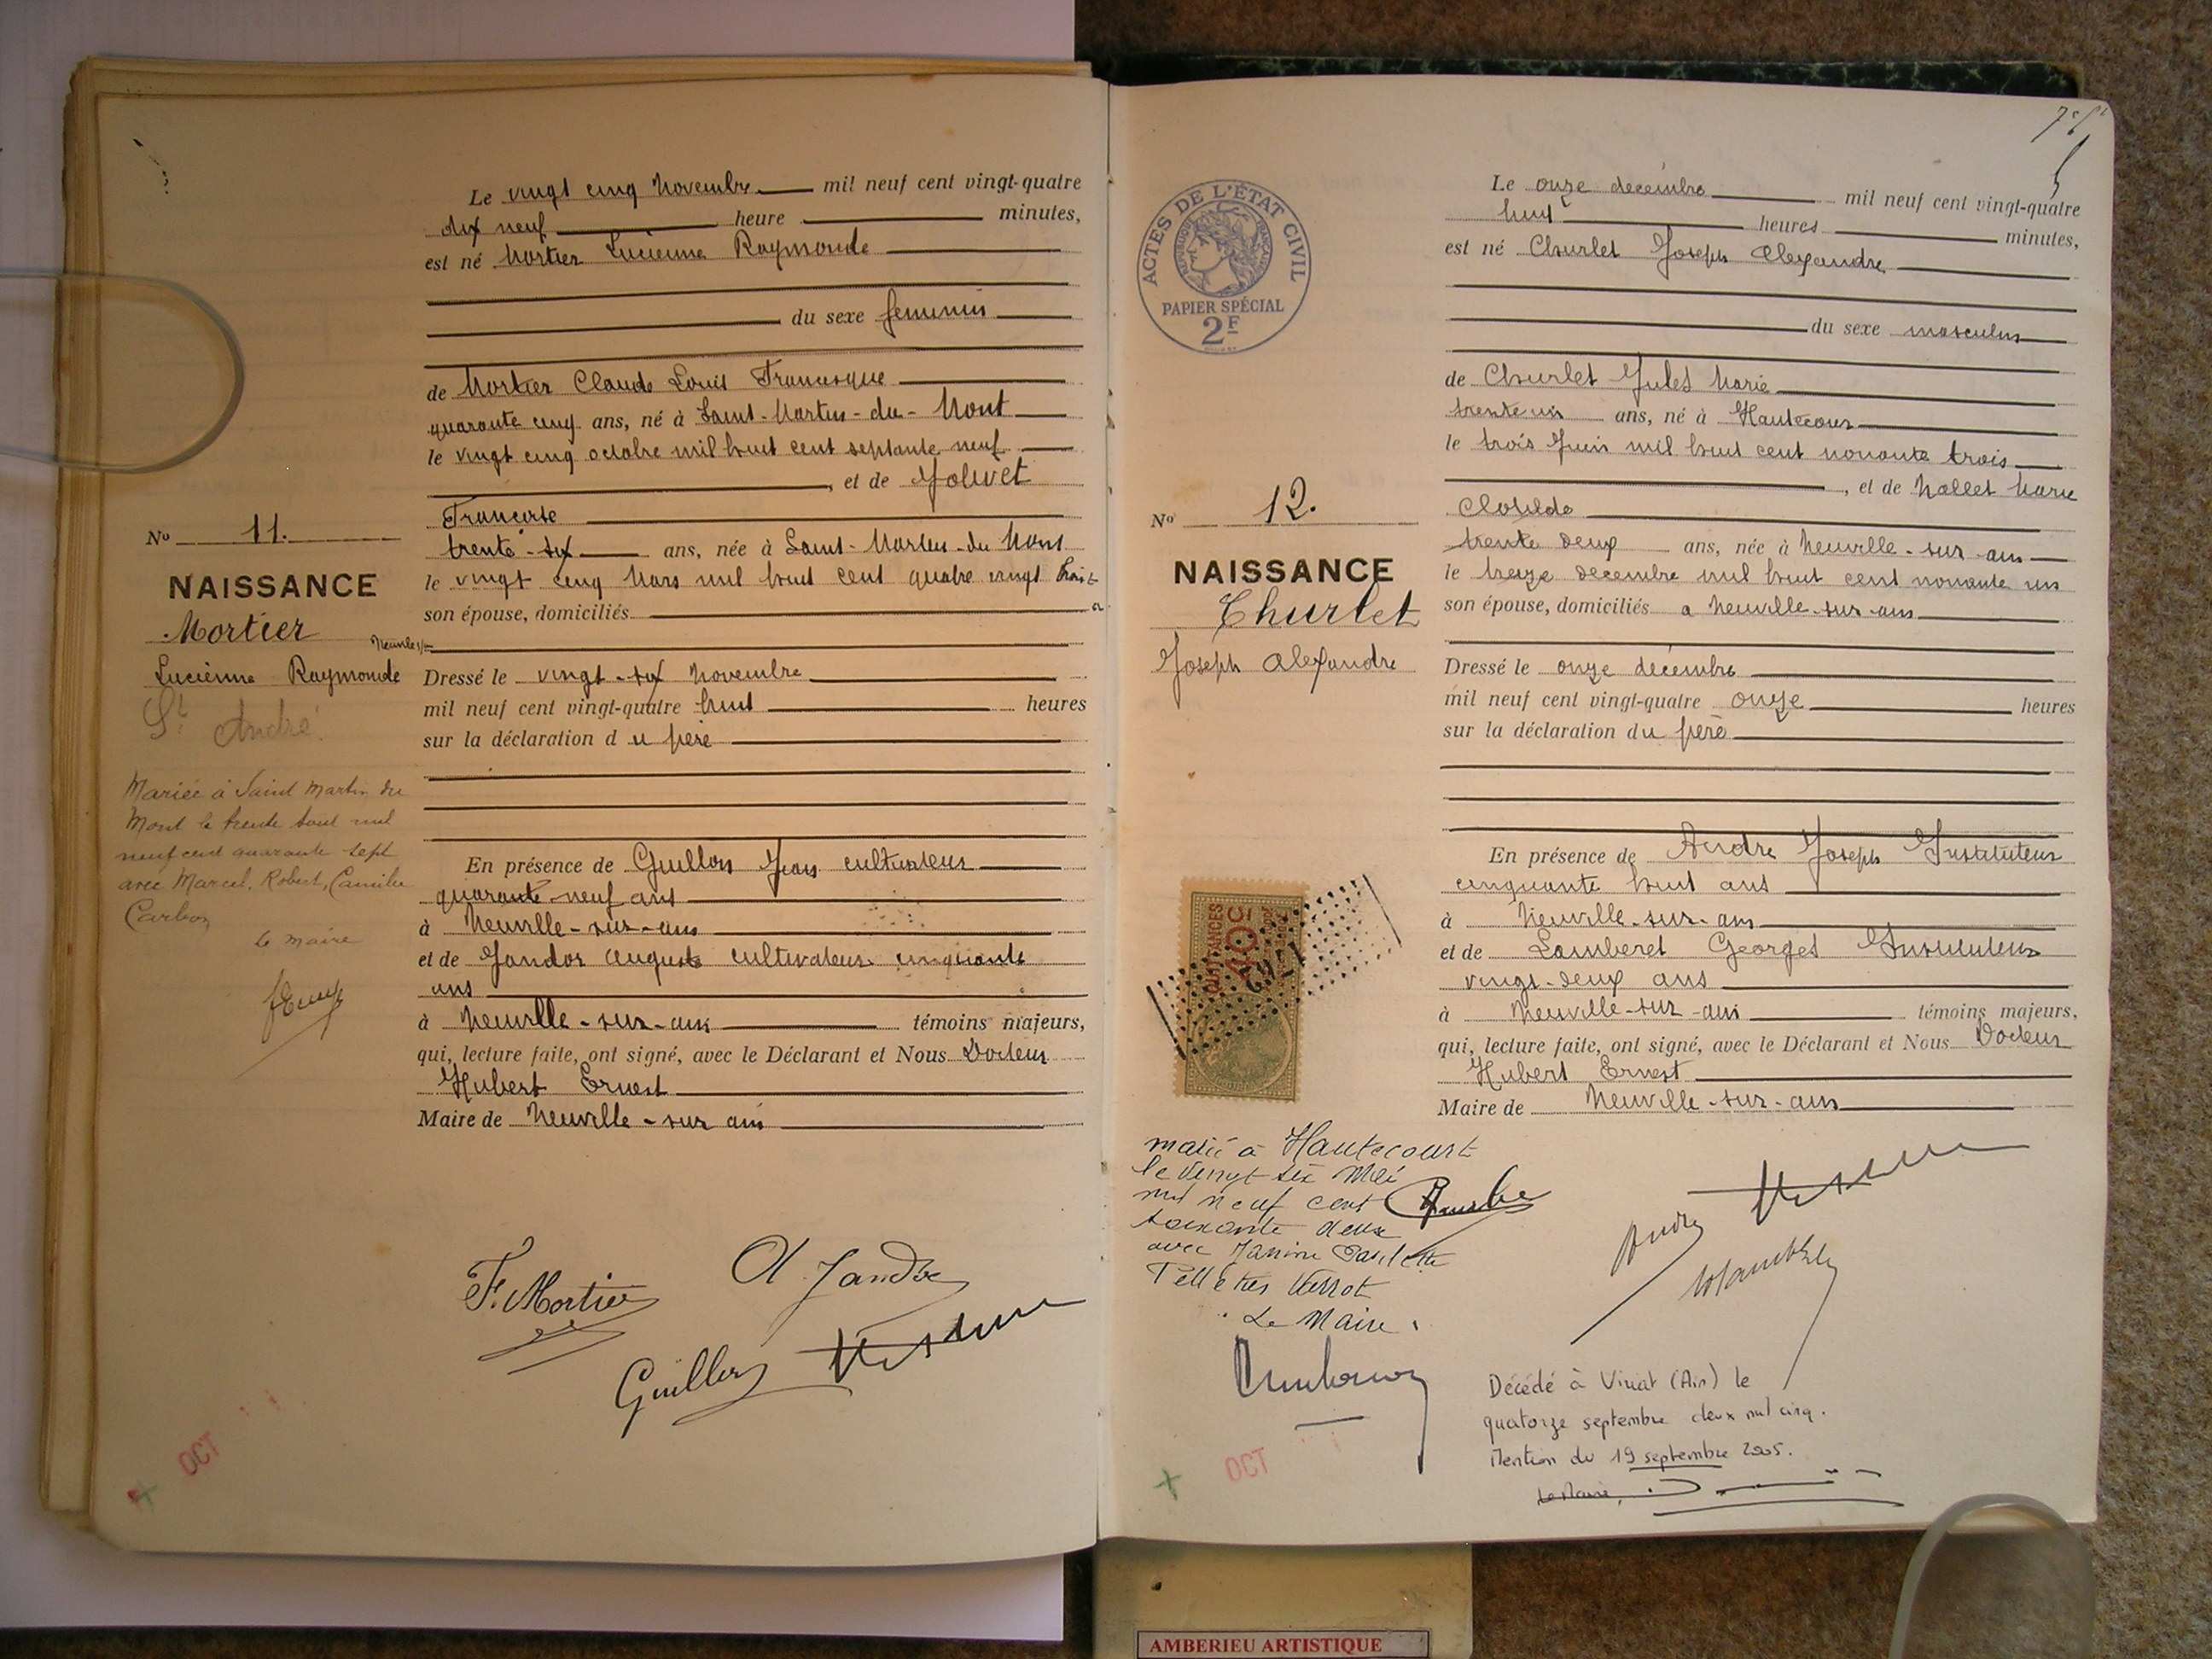 Le vingt cinq Novembre mil neuf cent vingt-quatre
dix neuf heure minutes,
est né Mortier Lucienne Raymonde
du sexe feminin
de Mortier Claude Louis Francisque
quarante cinq ans, né à Saint-Martin-du-Mont
le vingt cinq octobre mil huit cent septante neuf
, et de Jolivet
Francoise
trente-six ans, née à Saint-Martin-du Mont
le vingt cinq Mars mil huit cent quatre vingt huit
son épouse, domiciliés a
Neuville s/
Dressé le vingt-six Novembre
mil neuf cent vingt-quatre huit heures
sur la déclaration du père
En présence de Guillon Jean cultivateur
quarante-neuf ans
à Neuville-sur-ain
et de Jandor Auguste cultivateur cinquante
ans
à Neuville-sur-ain témoins majeurs,
qui, lecture faite, ont signé, avec le Déclarant et Nous Docteur
Hubert Ernest
Maire de Neuville-sur ain
F. Mortier
Guillon
No 11.
NAISSANCE
Mortier
Lucienne Raymonde
St André
Mariée à Saint Martin du
Mont le trente août mil
neuf cent quarante sept
avec Marcel, Robert, Camille
Carbon
Le maire
OCT
ACTES DE L'ÉTAT CIVIL
RÉPUBLIQUE FRANÇAISE
PAPIER SPÉCIAL
2F
Le onze decembre mil neuf cent vingt-quatre
huit heures minutes,
est né Churlet Joseph Alexandre
du sexe masculin
de Churlet Jules Marie
trente un ans, né à Hautecour
le trois Juin mil huit cent nonante trois
, et de Mallet Marie
Clotilde
trente deux ans, née à Neuville-sur-ain
le treize decembre mil huit cent nonante un
son épouse, domiciliés a Neuville-sur-ain
Dressé le onze décembre
mil neuf cent vingt-quatre onze heures
sur la déclaration du père
En présence de André Joseph Instituteur
cinquante huit ans
à Neuville-sur-ain
et de Lamberet Georges Instituteur
vingt-deux ans
à Neuville-sur-ain témoins majeurs,
qui, lecture faite, ont signé, avec le Déclarant et Nous Docteur
Hubert Ernest
Maire de Neuville-sur-ain
No 12.
NAISSANCE
Churlet
Joseph Alexandre
QUITTANCES
marié à Hautecourt
le vingt six Mai
mil neuf cent
soixante deux
avec Janine Paulette
Verrot
Le Maire
Décédé à Viriat (Ain) le
quatorze septembre deux mil cinq.
Mention du 19 septembre 2005.
Le Maire,
OCT
AMBERIEU ARTISTIQUE